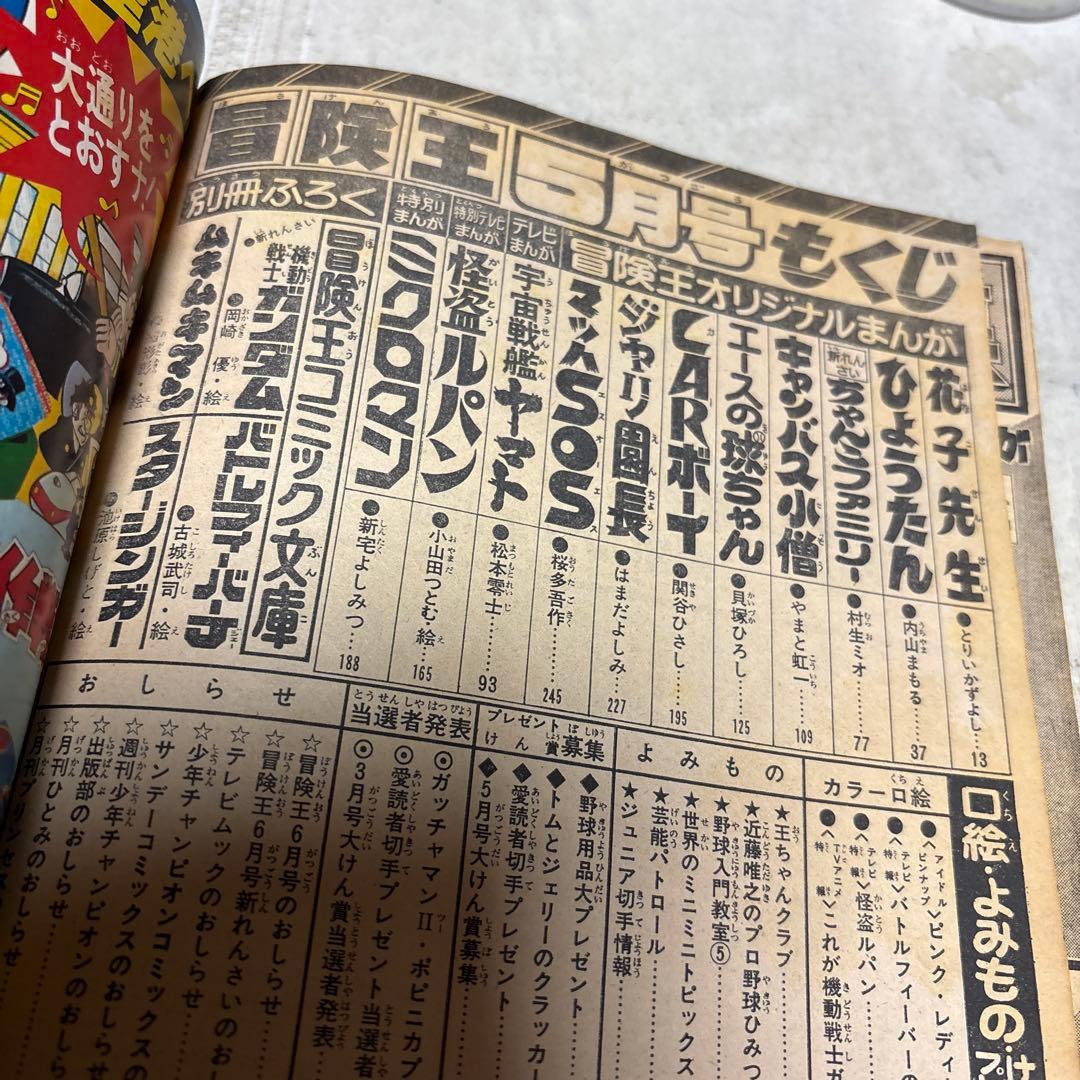 大通りを
とおす
冒険王5月号もくじ
冒険王オリジナルまんが
花子先生●とりいかずよし……13
ひょうたん●内山まもる……37
新れんさい
ちゃんらファミリー●村生ミオ……77
キャンバス小僧●やまと虹一……109
エースの球ちゃん●貝塚ひろし……125
CARボーイ●関谷ひさし……195
ジャリ園長●はまだよしみ……227
マッハSOS●桜多吾作……245
テレビまんが
宇宙戦艦ヤマト●松本零士……93
特別テレビまんが
怪盗ルパン●小山田つとむ・絵……165
特別まんが
ミクロマン●新宅よしみつ……188
別冊ふろく
冒険王コミック文庫
●新れんさい
機動戦士ガンダム●岡崎優・絵
バトルフィーバーJ●古城武司・絵
ムキムキマン
スタージンガー●池原しげと・絵
口絵・よみもの
カラー口絵
●〈アイドルピンナップ〉ピンク・レディ
●〈テレビ特報〉バトルフィーバーの
●〈テレビ特報〉怪盗ルパン
●〈TVアニメ特報〉これが機動戦士ガ
よみもの
★王ちゃんクラブ
★近藤唯之のプロ野球ひみつ
★野球入門教室⑤
★世界のミニミニトピックス
★芸能パトロール
★ジュニア切手情報
プレゼント
けん賞募集
◆野球用品大プレゼント
◆トムとジェリーのクラッカー
◆愛読者切手プレゼント
◆5月号大けん賞募集
当選者発表
◉ガッチャマンⅡ・ポピニカプ
◉愛読者切手プレゼント当選者
◉3月号大けん賞当選者発表
おしらせ
☆冒険王6月号のおしらせ
☆冒険王6月号新れんさいのお
☆テレビムックのおしらせ
☆少年チャンピオンコミックスの
☆サンデーコミックスのおしらせ
☆週刊少年チャンピオンのおしら
☆出版部のおしらせ
☆月刊ひとみのおしらせ
☆月刊プリンセス